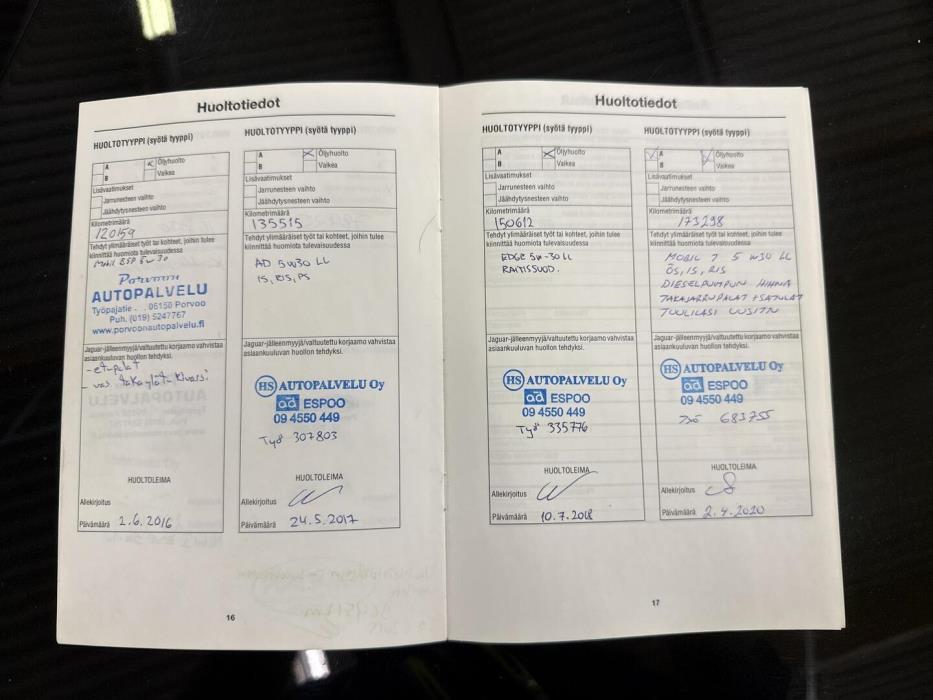 Huoltotiedot
HUOLTOTYYPPI (syötä tyyppi)
A
Öljyhuolto
B
Vaikea
Lisävaatimukset
Jarrunesteen vaihto
Jäähdytysnesteen vaihto
Kilometrimäärä
120159
Tehdyt ylimääräiset työt tai kohteet, joihin tulee
kiinnittää huomiota tulevaisuudessa
Mobil ESP 5w30
Porvoon
AUTOPALVELU
Työpajatie 06150 Porvoo
Puh. (019) 5247767
www.porvoonautopalvelu.fi
Jaguar-jälleenmyyjä/valtuutettu korjaamo vahvistaa
asiaankuuluvan huollon tehdyksi.
- etupalat
- vas. taka
HUOLTOLEIMA
Allekirjoitus
Päivämäärä 2.6.2016
HUOLTOTYYPPI (syötä tyyppi)
A
Öljyhuolto
B
Vaikea
Lisävaatimukset
Jarrunesteen vaihto
Jäähdytysnesteen vaihto
Kilometrimäärä
135515
Tehdyt ylimääräiset työt tai kohteet, joihin tulee
kiinnittää huomiota tulevaisuudessa
AD 5W30 LL
IS, RIS, PS
Jaguar-jälleenmyyjä/valtuutettu korjaamo vahvistaa
asiaankuuluvan huollon tehdyksi.
HS AUTOPALVELU Oy
ad ESPOO
09 4550 449
Työ 307803
HUOLTOLEIMA
Allekirjoitus
Päivämäärä 24.5.2017
16
Huoltotiedot
HUOLTOTYYPPI (syötä tyyppi)
A
Öljyhuolto
B
Vaikea
Lisävaatimukset
Jarrunesteen vaihto
Jäähdytysnesteen vaihto
Kilometrimäärä
150612
Tehdyt ylimääräiset työt tai kohteet, joihin tulee
kiinnittää huomiota tulevaisuudessa
EDGE 5W-30 LL
RAITISSUOD.
Jaguar-jälleenmyyjä/valtuutettu korjaamo vahvistaa
asiaankuuluvan huollon tehdyksi.
HS AUTOPALVELU Oy
ad ESPOO
09 4550 449
Työ 335776
HUOLTOLEIMA
Allekirjoitus
Päivämäärä 10.7.2018
HUOLTOTYYPPI (syötä tyyppi)
A
Öljyhuolto
B
Vaikea
Lisävaatimukset
Jarrunesteen vaihto
Jäähdytysnesteen vaihto
Kilometrimäärä
173298
Tehdyt ylimääräiset työt tai kohteet, joihin tulee
kiinnittää huomiota tulevaisuudessa
MOBIL 1 5W30 LL
ÖS, IS, RIS
DIESELPUMPUN HIHNA
TAKAJARRUPALAT + SATULAT
TUULILASI UUSITTU
Jaguar-jälleenmyyjä/valtuutettu korjaamo vahvistaa
asiaankuuluvan huollon tehdyksi.
HS AUTOPALVELU Oy
ad ESPOO
09 4550 449
Työ 683755
HUOLTOLEIMA
Allekirjoitus
Päivämäärä 2.4.2020
17